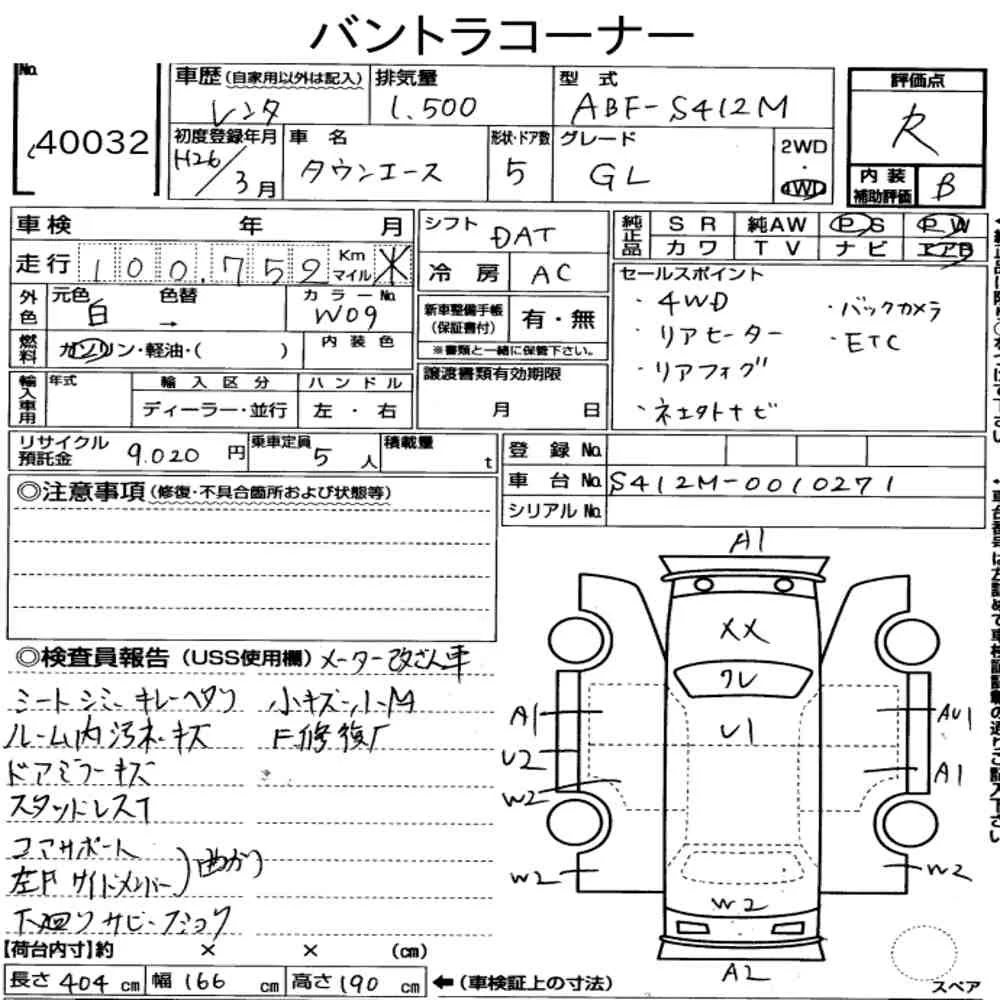 バントラコーナー
No.
40032
車歴 (自家用以外は記入)
レンタ
排気量
1,500
型 式
ABF-S412M
評価点
R
初度登録年月
H26/3月
車 名
タウンエース
形状・ドア数
5
グレード
GL
2WD
・
4WD
内 装
補助評価
B
車検 年 月
走行 100,752 Km
マイル
シフト
DAT
冷 房
AC
純正品
SR 純AW PS PW
カワ TV ナビ エアB
外色
元色
白
色替
→
カラーNo.
W09
燃料
ガソリン・軽油・( )
内 装 色
新車整備手帳
(保証書付)
有・無
※書類と一緒に保管下さい。
セールスポイント
・4WD
・リアヒーター
・リアフォグ
・バックカメラ
・ETC
輸入車用
年式
輸 入 区 分
ディーラー・並行
ハ ン ド ル
左 ・ 右
譲渡書類有効期限
月 日
リサイクル
預託金
9.020 円
乗車定員
5 人
積載量
t
登 録 No.
車 台 No. S412M-0010271
シリアル No.
◎注意事項 (修復・不具合箇所および状態等)
◎検査員報告 (USS使用欄) メーター改ざん車
シートシミ・キレ・ヘタリ 小キズ・小凹
ルーム内汚れ・キズ F修復有
ドアミラーキズ
スタッドレスT
コアサポート
左Fサイドメンバー
曲がり
下廻りサビ・フショク
A1
XX
ワレ
U1
A1
U2
W2
W2
AU1
A1
W2
W2
A2
【荷台内寸】約 × × (cm)
長さ 404 cm 幅 166 cm 高さ 190 cm ←(車検証上の寸法)
スペア